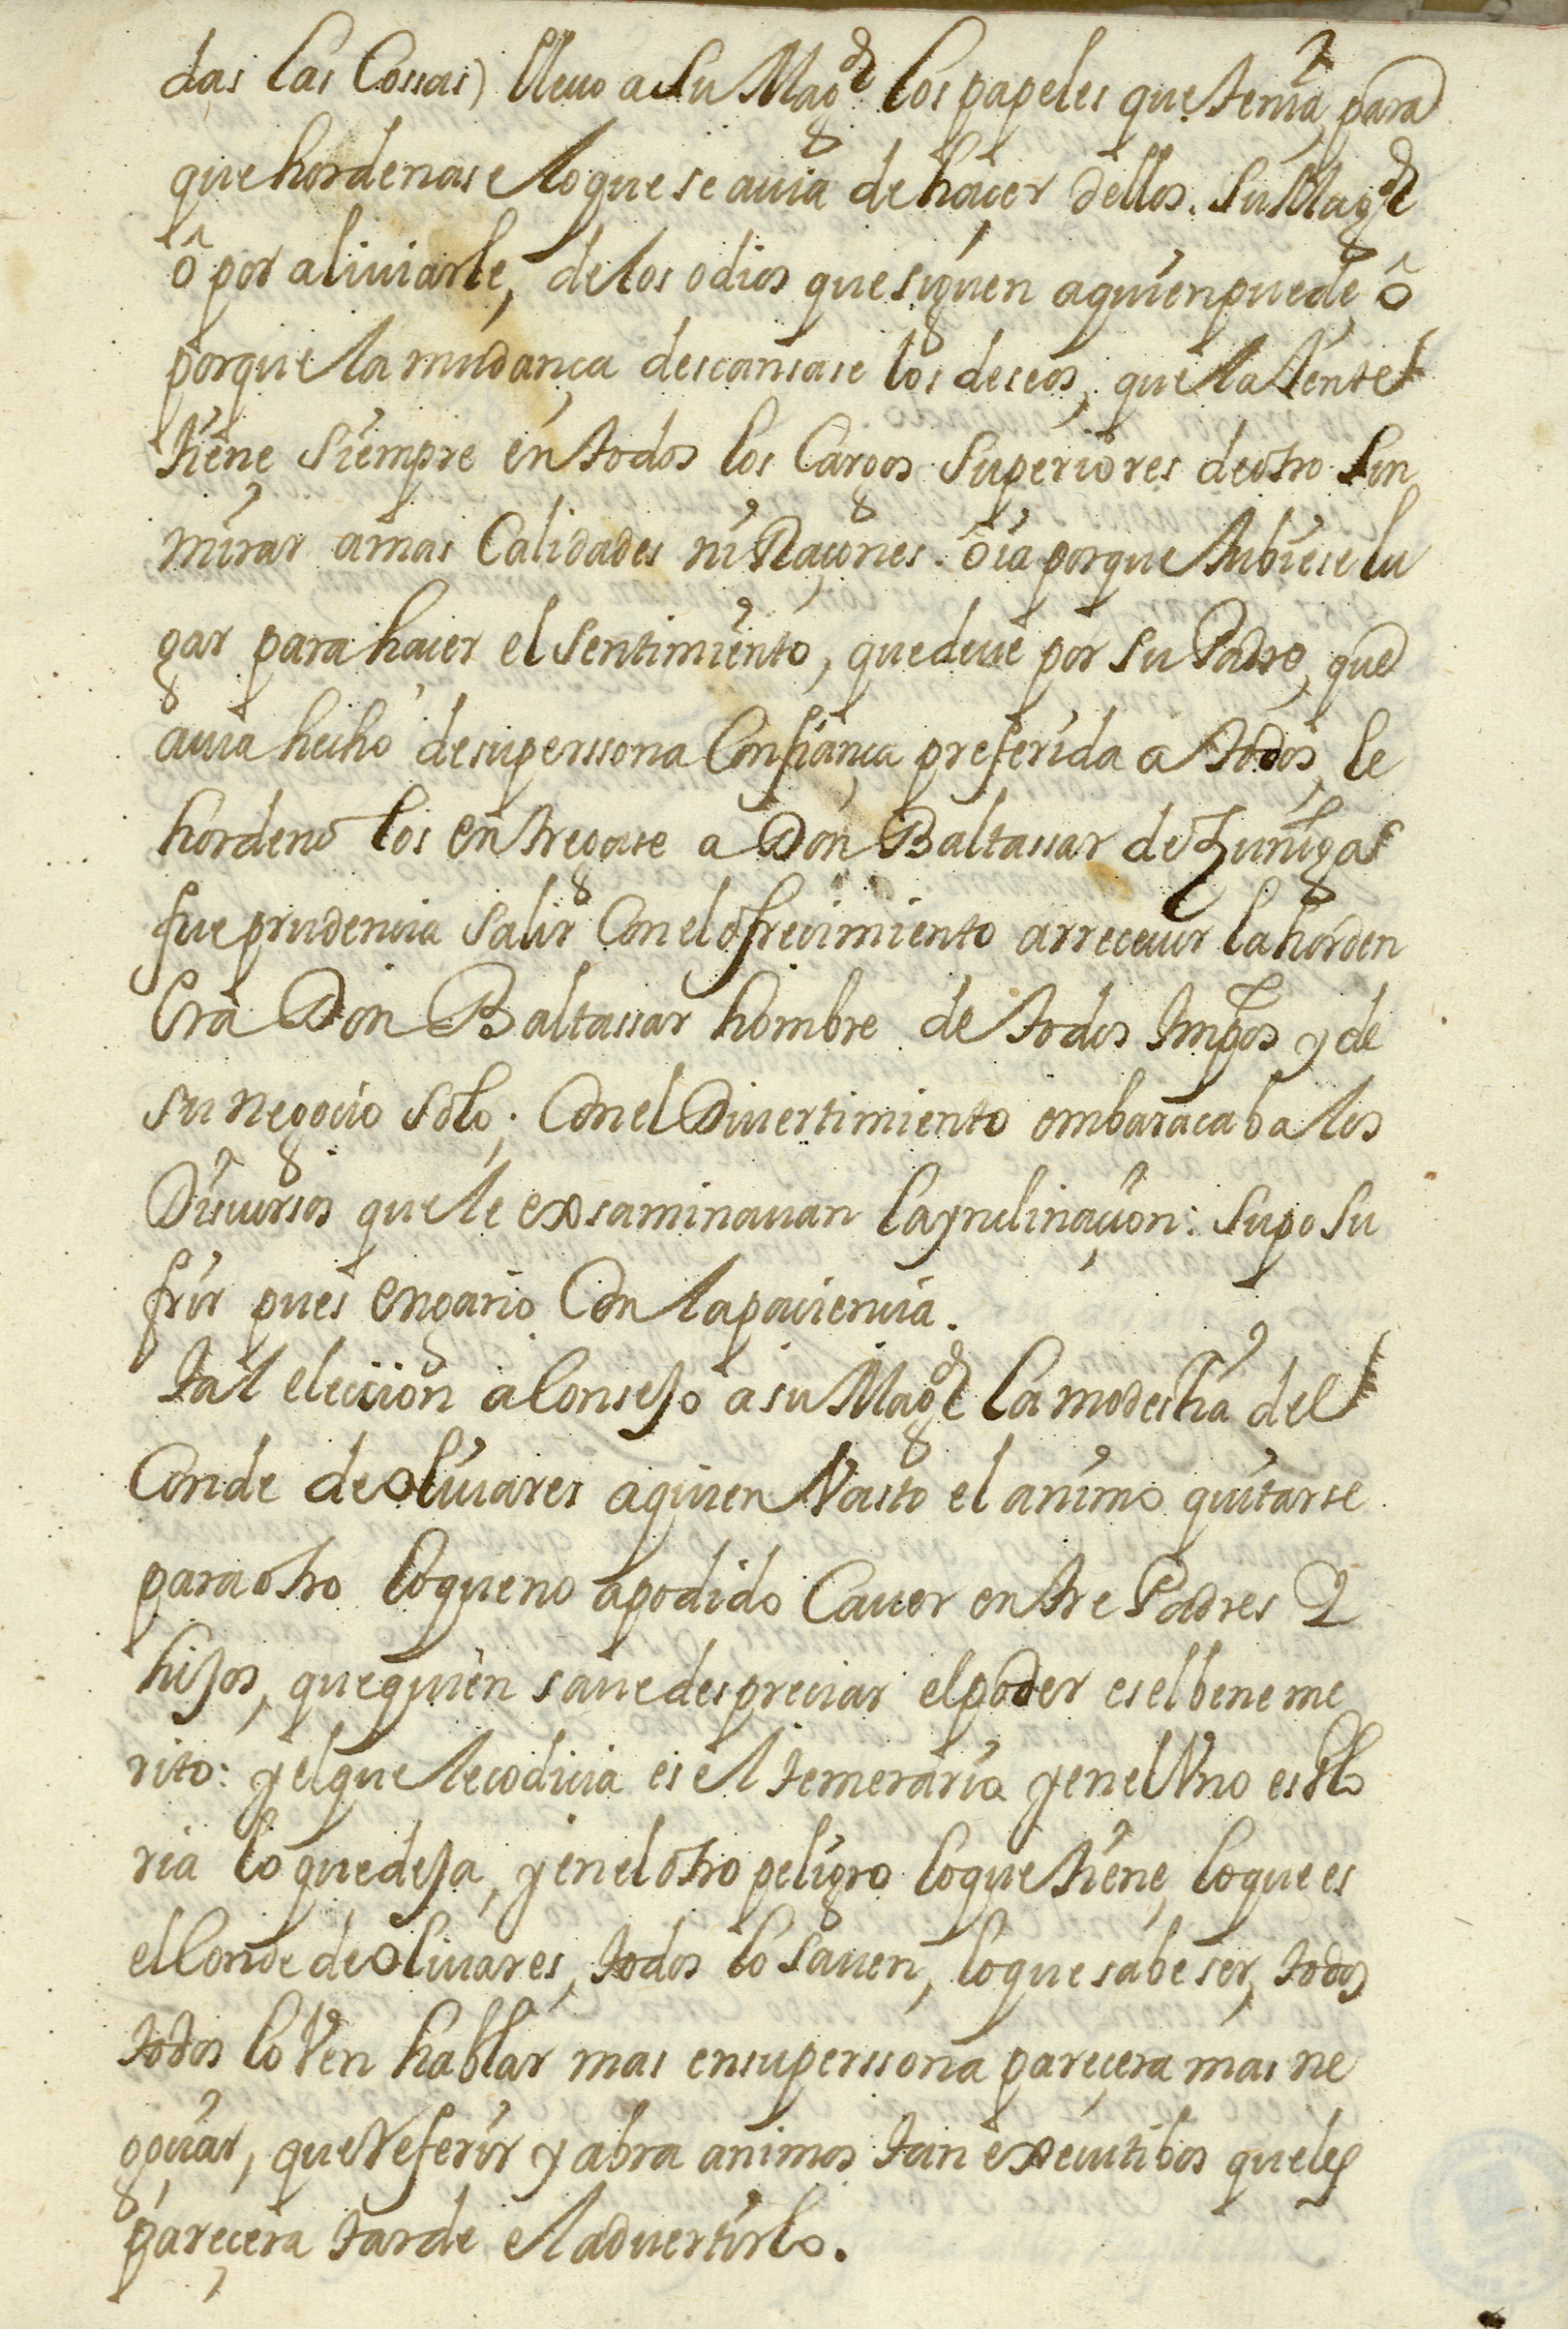 das las Cossas) lleuo a su Magd los papeles que tenia, para
que hordenase lo que se auia de haçer dellos. su Magd
ô por aliuiarle, de los odios que siguen a quien puede, ô
porque la mudança descansase los deseos, que la Jente
tiene siempre en todos los Cargos superiores de otro sin
mirar a mas Calidades ni Raçones. ô ia porque tubiese lu
gar para hacer el sentimiento, que deue por su Padre, que
auia hecho de su perssona Confiança preferida a todos, le
hordeno los entregase a Don Baltassar de Zuñiga
fue prudencia salir Con el ofrecimiento arreceuir la horden
Era Don Baltassar hombre de todos tmpos y de
su negocio solo; Con el Diuertimiento embaraçaba los
Discursos que le exsaminauan la ynclinaçion: supo su
frir pues engaño Con la paciencia.
tal eleccion aConsejo a su Magd la modestia del
Conde de oliuares a quien Vasto el animo quitarse
para otro lo que no a podido Cauer entre Padres Y
hijos, que quien saue despreciar el poder es el beneme
rito: y el que le codicia es el temerario y en el Vno es Glo
ria lo que deja, y en el otro peligro lo que tiene, lo que es
el Conde de oliuares, todos lo sauen, lo que sabe ser, todos
todos lo Ven hablar mas en su perssona pareçera mas ne
goçiar, que Referir y abra animos tan executibos que les
pareçera tarde el aduertirlo.